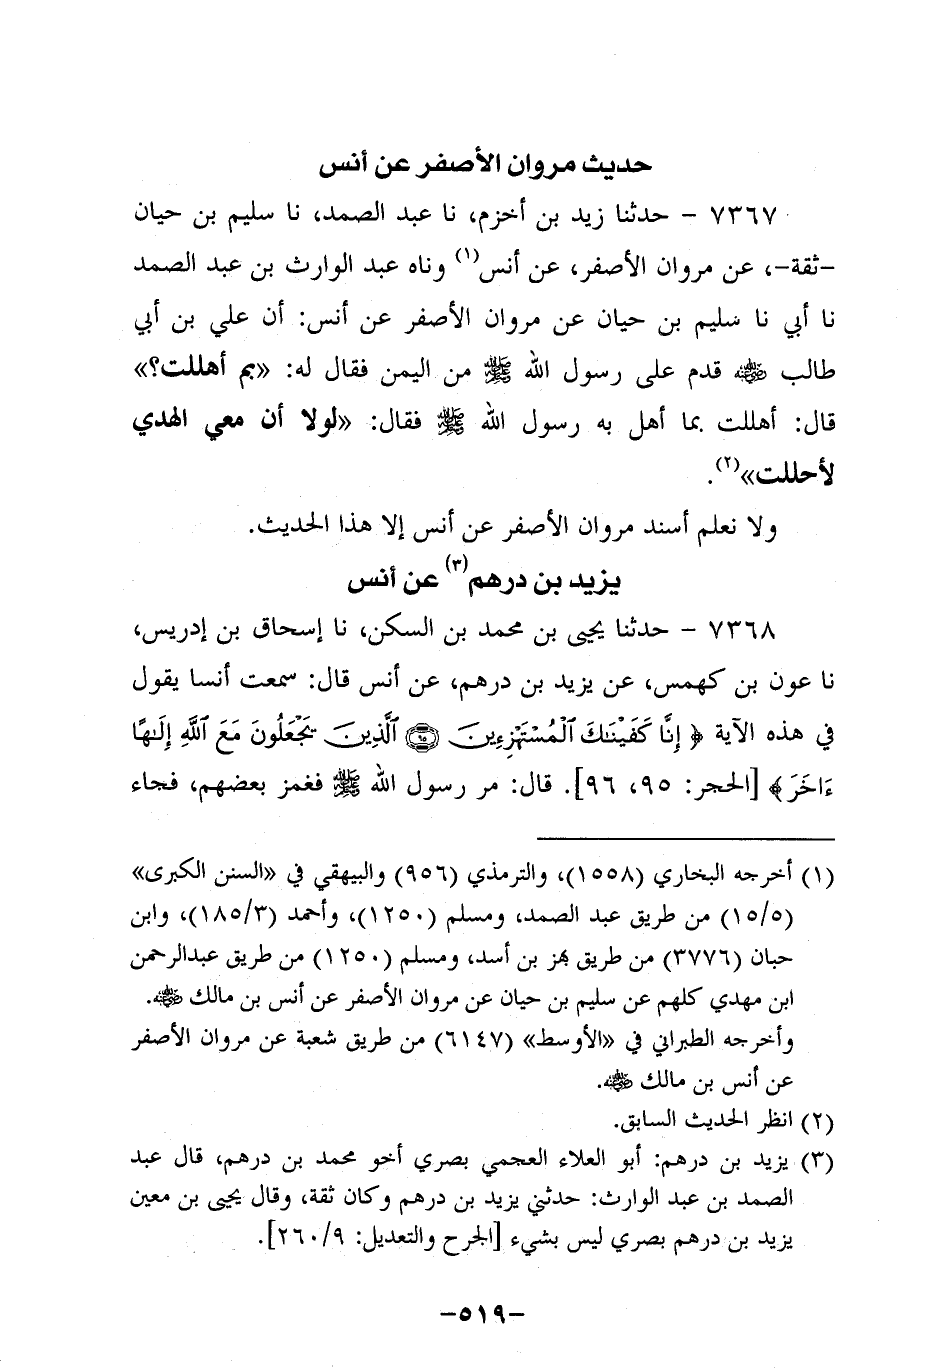 حديث مروان الأصفر عن أنس
٧٣٦٧ - حدثنا زيد بن أخزم، نا عبد الصمد، نا سليم بن حيان
-ثقة-، عن مروان الأصفر، عن أنس(١) وناه عبد الوارث بن عبد الصمد
نا أبي نا سليم بن حيان عن مروان الأصفر عن أنس: أن علي بن أبي
طالب ﵁ قدم على رسول الله ﷺ من اليمن فقال له: «بم أهللت؟»
قال: أهللت بما أهل به رسول الله ﷺ فقال: «لولا أن معي الهدي
لأحللت»(٢).
ولا نعلم أسند مروان الأصفر عن أنس إلا هذا الحديث.
يزيد بن درهم(٣) عن أنس
٧٣٦٨ - حدثنا يحيى بن محمد بن السكن، نا إسحاق بن إدريس،
نا عون بن كهمس، عن يزيد بن درهم، عن أنس قال: سمعت أنسا يقول
في هذه الآية ﴿ إِنَّا كَفَيْنَٰكَ ٱلْمُسْتَهْزِءِينَ ۝٩٥ ٱلَّذِينَ يَجْعَلُونَ مَعَ ٱللَّهِ إِلَٰهًا
ءَاخَرَ ﴾ [الحجر: ٩٥، ٩٦]. قال: مر رسول الله ﷺ فغمز بعضهم، فجاء
(١) أخرجه البخاري (١٥٥٨)، والترمذي (٩٥٦) والبيهقي في «السنن الكبرى»
(١٥/٥) من طريق عبد الصمد، ومسلم (١٢٥٠)، وأحمد (١٨٥/٣)، وابن
حبان (٣٧٧٦) من طريق بهز بن أسد، ومسلم (١٢٥٠) من طريق عبدالرحمن
ابن مهدي كلهم عن سليم بن حيان عن مروان الأصفر عن أنس بن مالك ﵁.
وأخرجه الطبراني في «الأوسط» (٦١٤٧) من طريق شعبة عن مروان الأصفر
عن أنس بن مالك ﵁.
(٢) انظر الحديث السابق.
(٣) يزيد بن درهم: أبو العلاء العجمي بصري أخو محمد بن درهم، قال عبد
الصمد بن عبد الوارث: حدثني يزيد بن درهم وكان ثقة، وقال يحيى بن معين
يزيد بن درهم بصري ليس بشيء [الجرح والتعديل: ٢٦٠/٩].
-٥١٩-